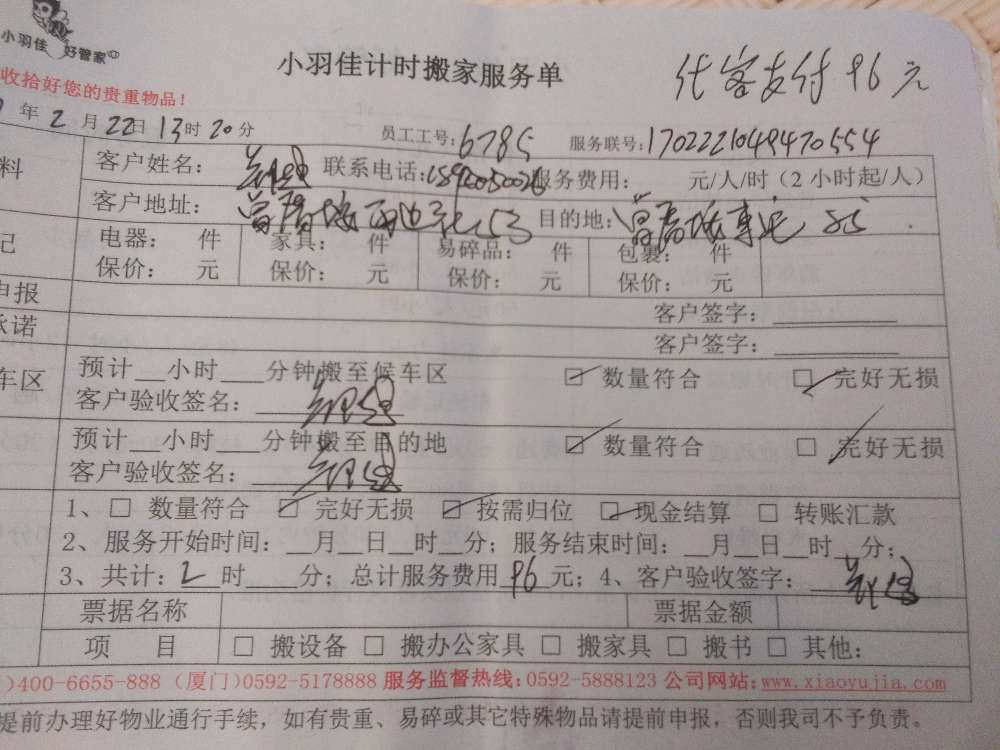 小羽佳 好管家
小羽佳计时搬家服务单
代客支付 96 元
收拾好您的贵重物品！
年 2 月 22日 13时 20分 员工工号：6785 服务联号：1702221049470554
料 客户姓名： 联系电话： 服务费用： 元/人/时（2 小时起/人）
客户地址： 目的地：
记 电器： 件 家具： 件 易碎品： 件 包裹： 件
保价： 元 保价： 元 保价： 元 保价： 元
申报 客户签字：
承诺 客户签字：
预计__小时___分钟搬至候车区 ☑ 数量符合 ☑ 完好无损
车区 客户验收签名：
预计__小时___分钟搬至目的地 ☑ 数量符合 ☑ 完好无损
客户验收签名：
1、□ 数量符合 ☑ 完好无损 ☑ 按需归位 ☑ 现金结算 □ 转账汇款
2、服务开始时间：__月__日__时__分；服务结束时间：__月__日__时__分；
3、共计：2 时___分；总计服务费用 96 元；4、客户验收签字：
票据名称 票据金额
项 目 □ 搬设备 □ 搬办公家具 □ 搬家具 □ 搬书 □ 其他：
)400-6655-888（厦门)0592-5178888 服务监督热线：0592-5888123 公司网站：www.xiaoyujia.com
提前办理好物业通行手续，如有贵重、易碎或其它特殊物品请提前申报，否则我司不予负责。